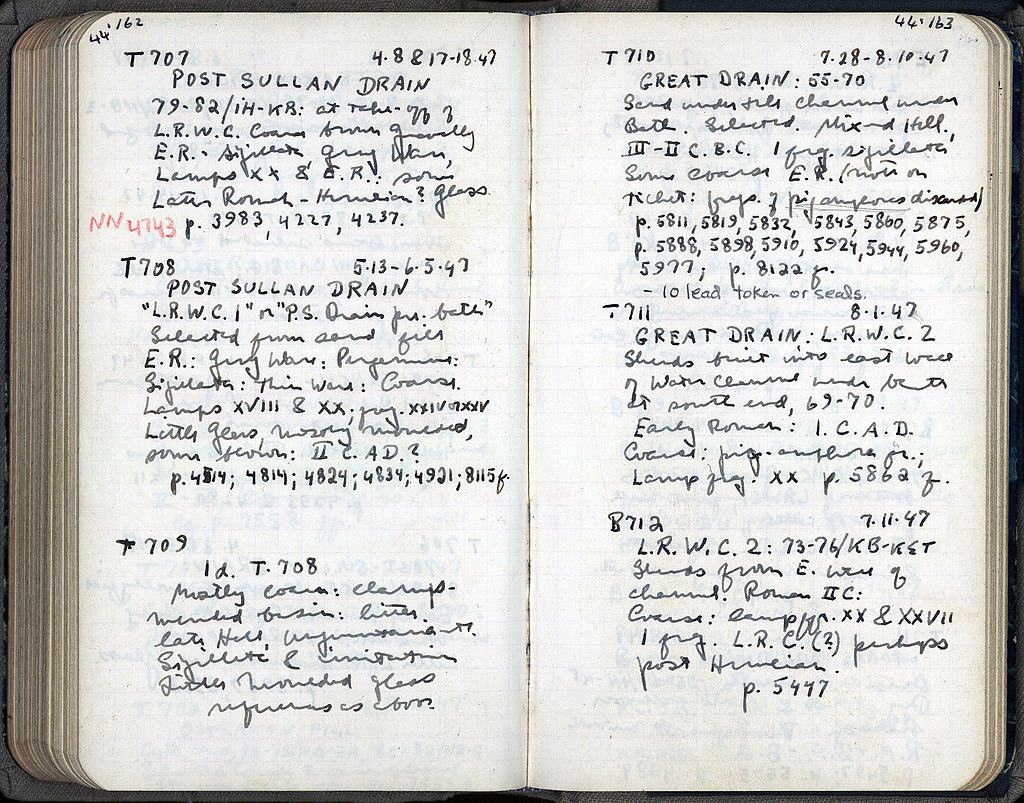 44·162
T 707 4·8 & 17-18·47
POST SULLAN DRAIN
79-82/IH-KB: at take-off of
L.R.W.C. Coarse brown gravelly
E.R.: Sigillata, Gray Ware,
Lamps XX & E.R.: some
Later Roman - Herulian? Glass
NN 4743 p. 3983, 4227, 4237.
T 708 5·13-6·5·47
POST SULLAN DRAIN
"L.R.W.C. 1" or "P.S. Drain pr. bath"
Selected from sand fill
E.R.: Gray Ware: Pergamene:
Sigillata: Thin Ware: Coarse.
Lamps XVIII & XX; frg. XXIV or XXV
Little Glass, mostly moulded,
some blown: II C. A.D.?
p. 4514; 4814; 4824; 4834; 4921; 8115 f.
709
Id. T. 708
Mostly coarse: clamp-
mended basin: little
late Hell.
Sigillata & imitation
Little moulded glass
references as above
44·163
T 710 7·28-8·10·47
GREAT DRAIN: 55-70
Sand under tile channel under
Bath. Selected. Mixed Hell.,
III-II C. B.C. 1 frg. sigillata
Some coarse E.R. (note on
ticket: frgs. of discarded)
p. 5811, 5819, 5832, 5843, 5860, 5875,
p. 5888, 5898, 5910, 5924, 5944, 5960,
5977; p. 8122 f.
- 10 lead token or seals.
T 711 8·1·47
GREAT DRAIN: L.R.W.C. 2
Sherds built into east wall
of water channel under bath
at south end, 69-70.
Early Roman: I. C. A.D.
Coarse: frg. amphora jr.;
Lamp frg. XX p. 5862 f.
B 712 7·11·47
L.R.W.C. 2: 73-76/KB-KET
Sherds from E. wall of
channel: Roman II C:
Coarse: lamp ffr. XX & XXVII
1 frg. L.R.C. (?) perhaps
post Herulian.
p. 5447